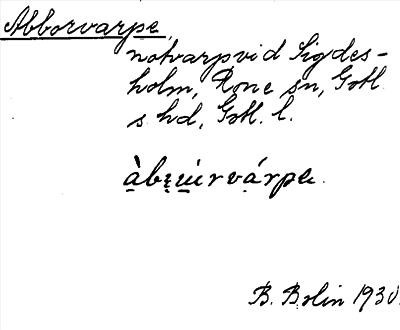 Abborvarpe,
notvarp vid Sigdes-
holm, Rone sn, Gotl.
s. hd, Gotl. l.
àbe̮ɯ́rvárpe.
B. Bolin 1930.